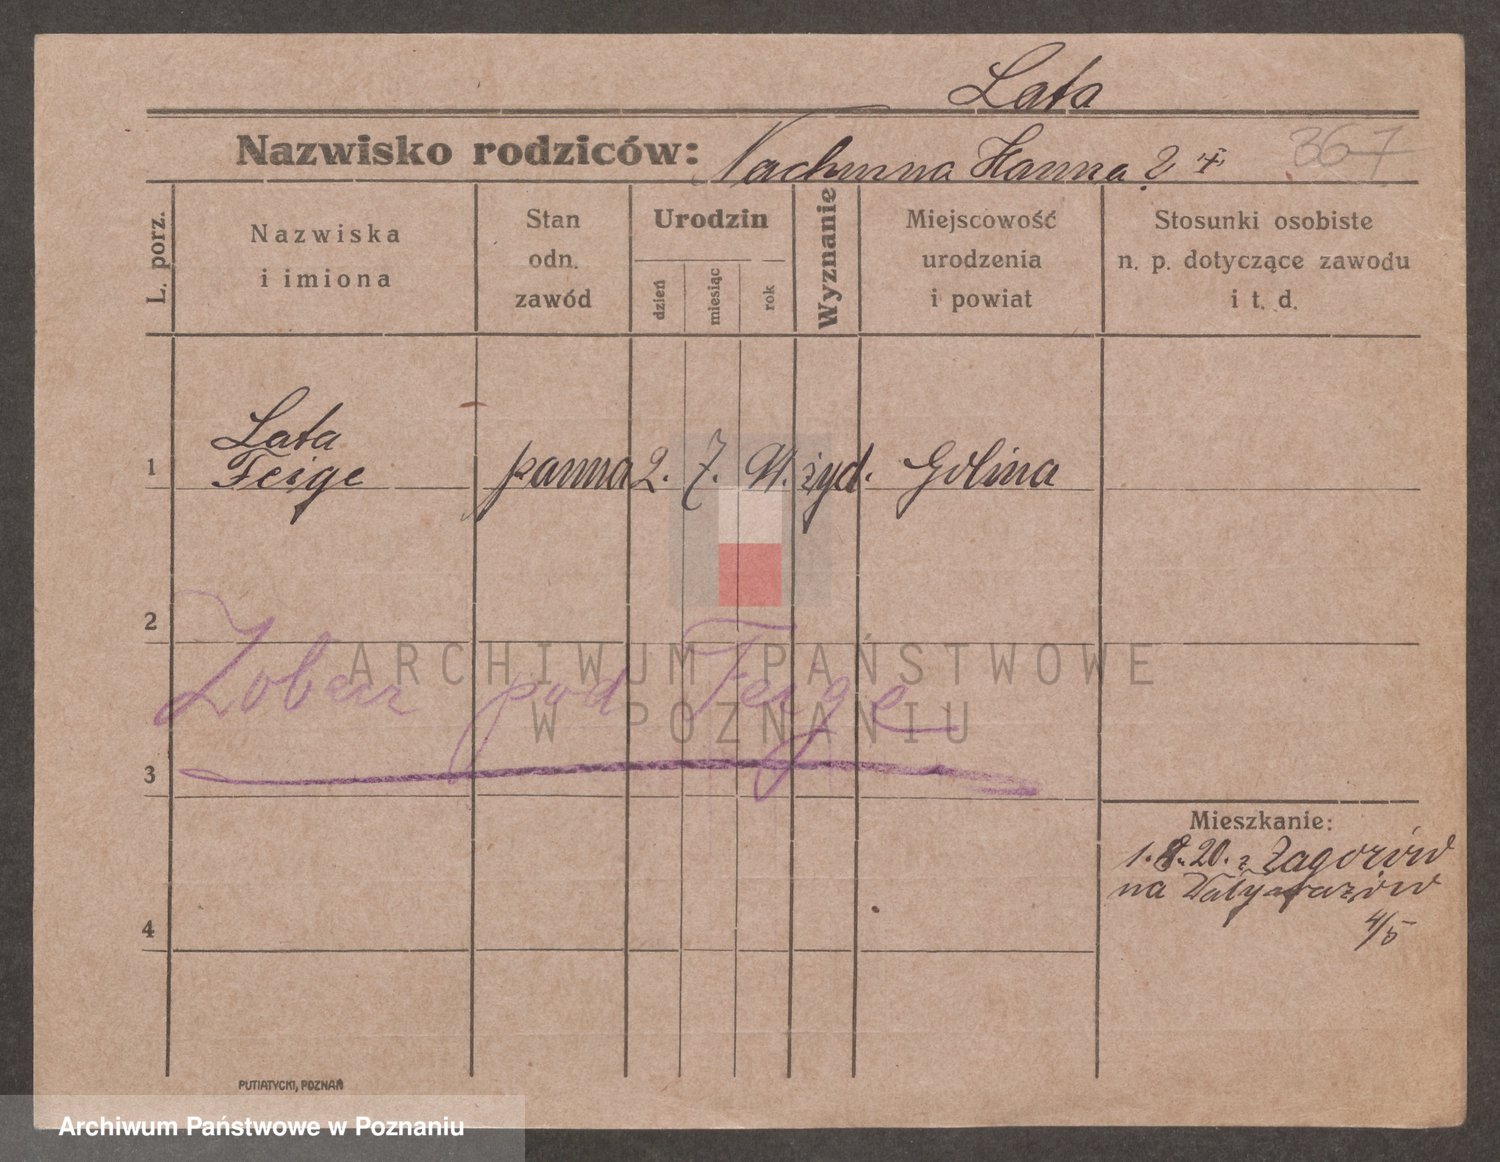 Lata
Nazwisko rodziców: Nachuma Hanna 2 ‡ 367
L. porz.
Nazwiska
i imiona
Stan
odn.
zawód
Urodzin
dzień
miesiąc
rok
Wyznanie
Miejscowość
urodzenia
i powiat
Stosunki osobiste
n. p. dotyczące zawodu
i t. d.
Lata
1 Feige panna 2. 7. żyd. Golina
2
Zobacz pod Feige
3
Mieszkanie:
1. 8. 20. z Zagorów
na
4/5
4
PUTIATYCKI, POZNAŃ
ARCHIWUM PAŃSTWOWE
W POZNANIU
Archiwum Państwowe w Poznaniu